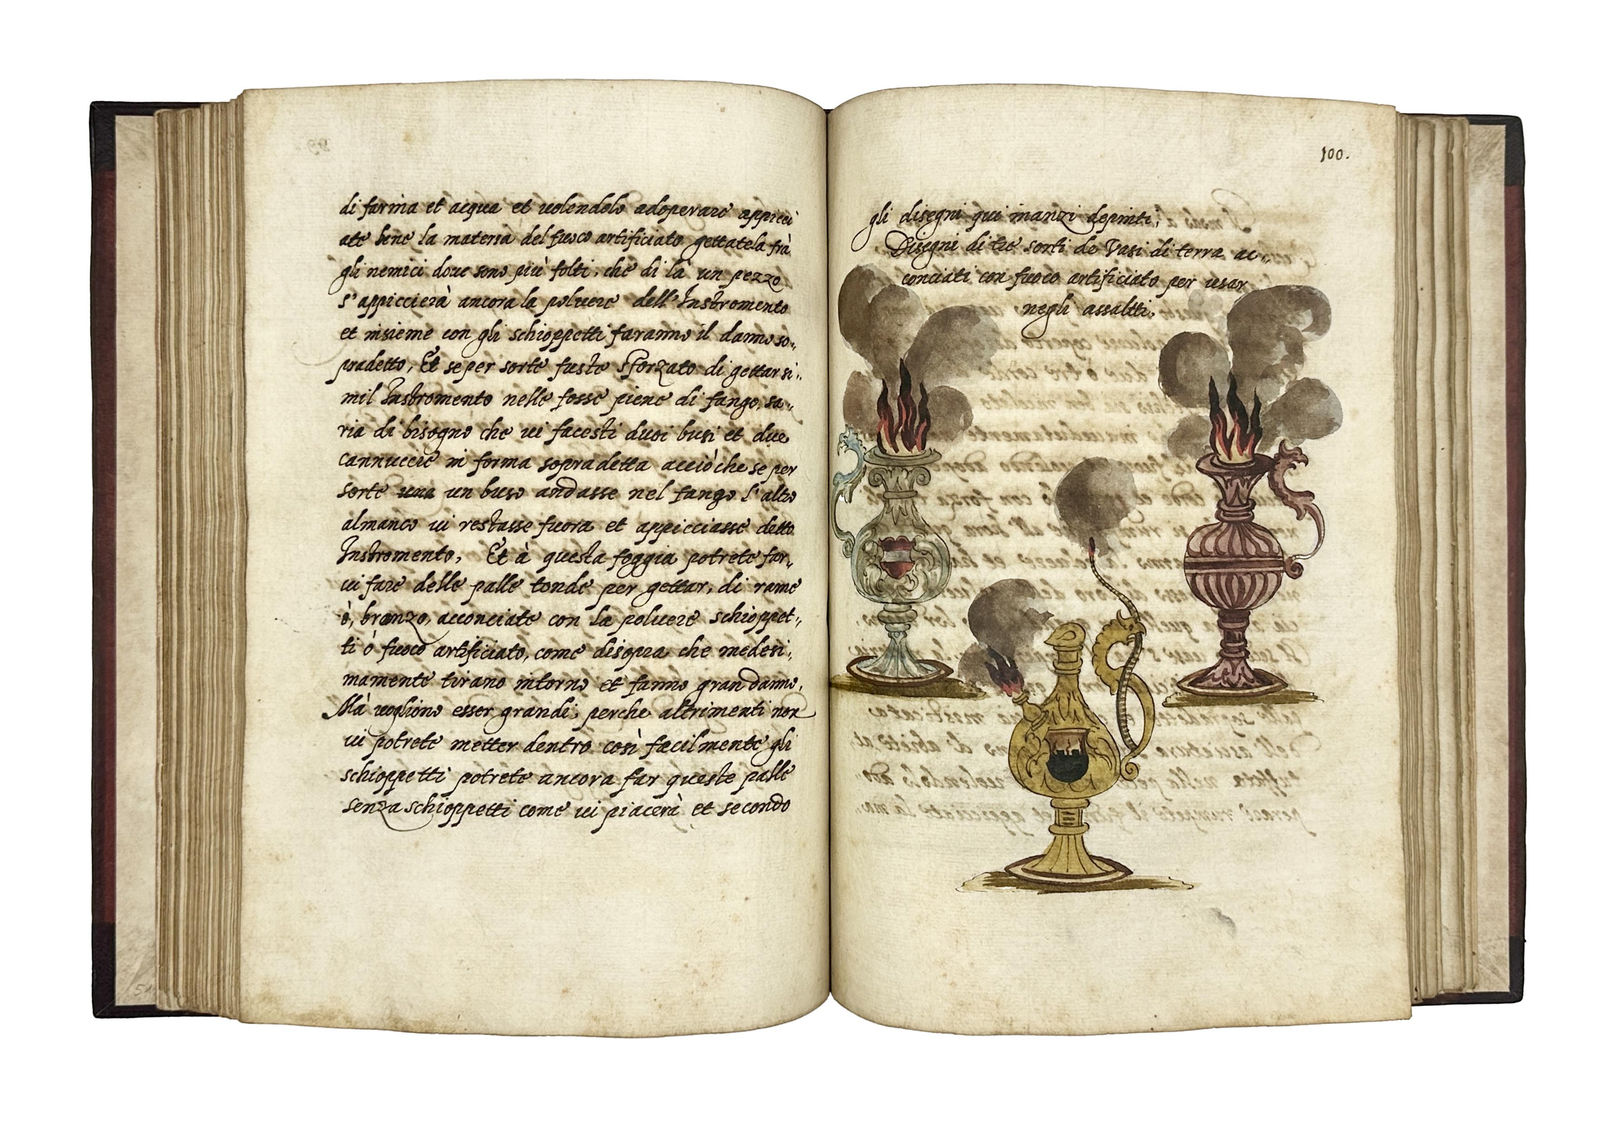 di farina et acqua et uolendelo adoperare appicci
ate bene la materia del fuoco artificiato gettatela frà
gli nemici doue sono più folti, che di là un pezzo
s'appiccierà ancora la poluere dell'Instromento
et insieme con gli schioppetti faranno il danno so,,
pradetto, Et se per sorte fuste sforzato di gettar si,,
mil Instromento nelle fosse piene di fango, sa,,
ria di bisogno che ui facesti duoi busi et due
cannuccie in forma sopradetta acciò che se per
sorte un buso andasse nel fango l'altro
almanco ui restasse fuora et appicciasse detto
Instromento, Et à questa foggia potrete far,,
ui fare delle palle tonde per gettar, di rame
ò, bronzo, acconciate con la poluere schioppet,,
ti ò fuoco artificiato, come disopra che medesi,,
mamente tirano intorno et fanno gran danno,
Mà uogliono esser grandi, perche altrimenti non
ui potrete metter dentro così facilmente gli
schioppetti potrete ancora far queste palle
senza schioppetti come ui piacerà et secondo
100.
gli disegni qui inanzi depinti,
Disegni di tre sorti de Vasi di terra ac,,
conciati con fuoco artificiato per usar
negli assalti,